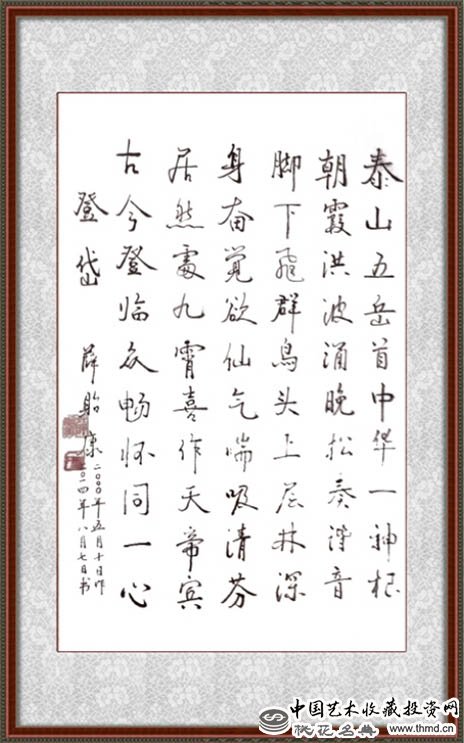 泰山五岳首中华一神根
朝霞洪波涌晚松奏谐音
脚下飛群鳥头上层林深
身奋覺欲仙气喘吸清芬
居然處九霄喜作天帝宾
古今登临众畅怀同一心
登岱
薛贻康
二〇〇〇年五月十日作
二〇一四年八月七日书
中国艺术收藏投资网
www.thmd.cn